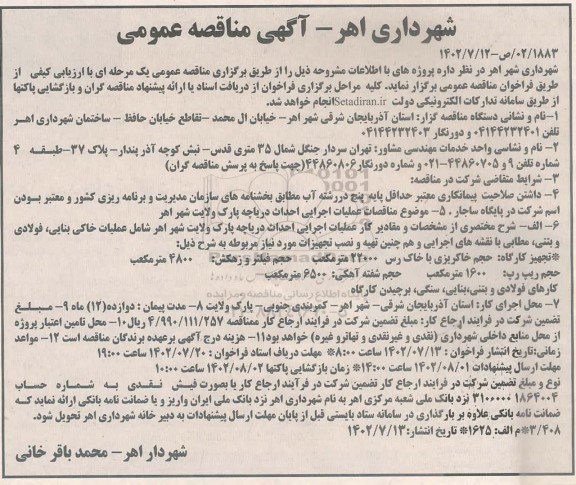 شهرداری اهر - آگهی مناقصه عمومی
۰۲/۱۸۸۳/ص-۱۴۰۲/۷/۱۲
شهرداری شهر اهر در نظر داره پروژه های با اطلاعات مشروحه ذیل را از طریق برگزاری مناقصه عمومی یک مرحله ای با ارزیابی کیفی از
طریق فراخوان مناقصه عمومی برگزار نماید. کلیه مراحل برگزاری فراخوان از دریافت اسناد یا ارائه پیشنهاد مناقصه گران و بازگشایی پاکتها
از طریق سامانه تدارکات الکترونیکی دولت Setadiran.ir انجام خواهد شد.
۱- نام و نشانی دستگاه مناقصه گزار: استان آذربایجان شرقی شهر اهر- خیابان ال محمد -تقاطع خیابان حافظ - ساختمان شهرداری اهر
تلفن ۰۴۱۴۴۲۳۲۴۰۱ و دورنگار ۰۴۱۴۴۲۳۲۴۰۳
۲- نام و نشانی واحد خدمات مهندسی مشاور: تهران سردار جنگل شمال ۳۵ متری قدس- نبش کوچه آذر پندار- پلاک ۳۷-طبقه ۴
شماره تلفن ۹ و ۰۲۱-۴۴۸۶۰۷۰۵ و شماره دورنگار ۴۴۸۶۰۸۰۶ (جهت پاسخ به پرسش مناقصه گران)
۳- شرایط متقاضی شرکت در مناقصه:
۴- داشتن صلاحیت پیمانکاری معتبر حداقل پایه پنج در رشته آب مطابق بخشنامه های سازمان مدیریت و برنامه ریزی کشور و معتبر بودن
اسم شرکت در پایگاه ساجار . ۵- موضوع مناقصات عملیات اجرایی احداث دریاچه پارک ولایت شهر اهر
۶- الف- شرح مختصری از مشخصات و مقادیر کار عملیات اجرایی احداث دریاچه پارک ولایت شهر اهر شامل عملیات خاکی بنایی، فولادی
و بتنی، مطابی با نقشه های اجرایی و هم چنین تهیه و نصب تجهیزات مورد نیاز مربوطه به شرح ذیل:
*تجهیز کارگاه: حجم خاکریزی با خاک رس ۲۲۰۰۰ مترمکعب حجم فیلتر و زهکش: ۴۸۰۰ مترمکعب
حجم ریپ رپ: ۱۶۰۰ مترمکعب حجم شفته آهکی: ۶۵۰۰ مترمکعب
کارهای فولادی و بتنی، بنایی، سنگی، برچیدن کارگاه
۷- محل اجرای کار: استان آذربایجان شرقی- شهر اهر- کمربندی جنوبی- پارک ولایت ۸- مدت پیمان : دوازده (۱۲) ماه ۹- مبلغ
تضمین شرکت در فرایند ارجاع کار: مبلغ تضمین شرکت در فرایند ارجاع کار ممناقصه ۴/۹۹۰/۱۱۱/۲۵۷ ریال ۱۰- محل تامین اعتبار پروژه
از محل منابع داخلی شهرداری (نقدی و غیرنقدی و تهاترو غیره) خواهد بود ۱۱- هزینه درج آگهی برعهده برندگان مناقصه است ۱۲- مواعد
زمانی: تاریخ انتشار فراخوان : ۱۴۰۲/۰۷/۱۳ ساعت ۸:۰۰* مهلت دریاف اسناد فراخوان : ۱۴۰۲/۰۷/۲۰ ساعت ۱۹:۰۰
مهلت ارسال پیشنهادات ۱۴۰۲/۰۸/۰۱ ساعت ۱۴:۰۰* زمان بازگشایی پاکتها ۱۴۰۲/۰۸/۰۲ ساعت ۱۰:۰۰
نوع و مبلغ تضمین شرکت در فرایند ارجاع کار تضمین شرکت در فرآیند ارجاع کار یا بصورت فیش نقدی به شماره حساب
۳۱۰۰۰۰۰۱۸۶۴۰۰۴ نزد بانک ملی شعبه مرکزی اهر به نام شهرداری اهر نزد بانک ملی ایران واریز و یا ضمانت نامه بانکی ارائه نماید که
ضمانت نامه بانکی علاوه بر بارگذاری در سامانه ستاد بایستی قبل از پایان مهلت ارسال پیشنهادات به دبیر خانه شهرداری اهر تحویل شود.
۳/۴۰۸*م الف: ۱۶۲۵* تاریخ انتشار: ۱۴۰۲/۷/۱۳
شهردار اهر- محمد باقر خانی